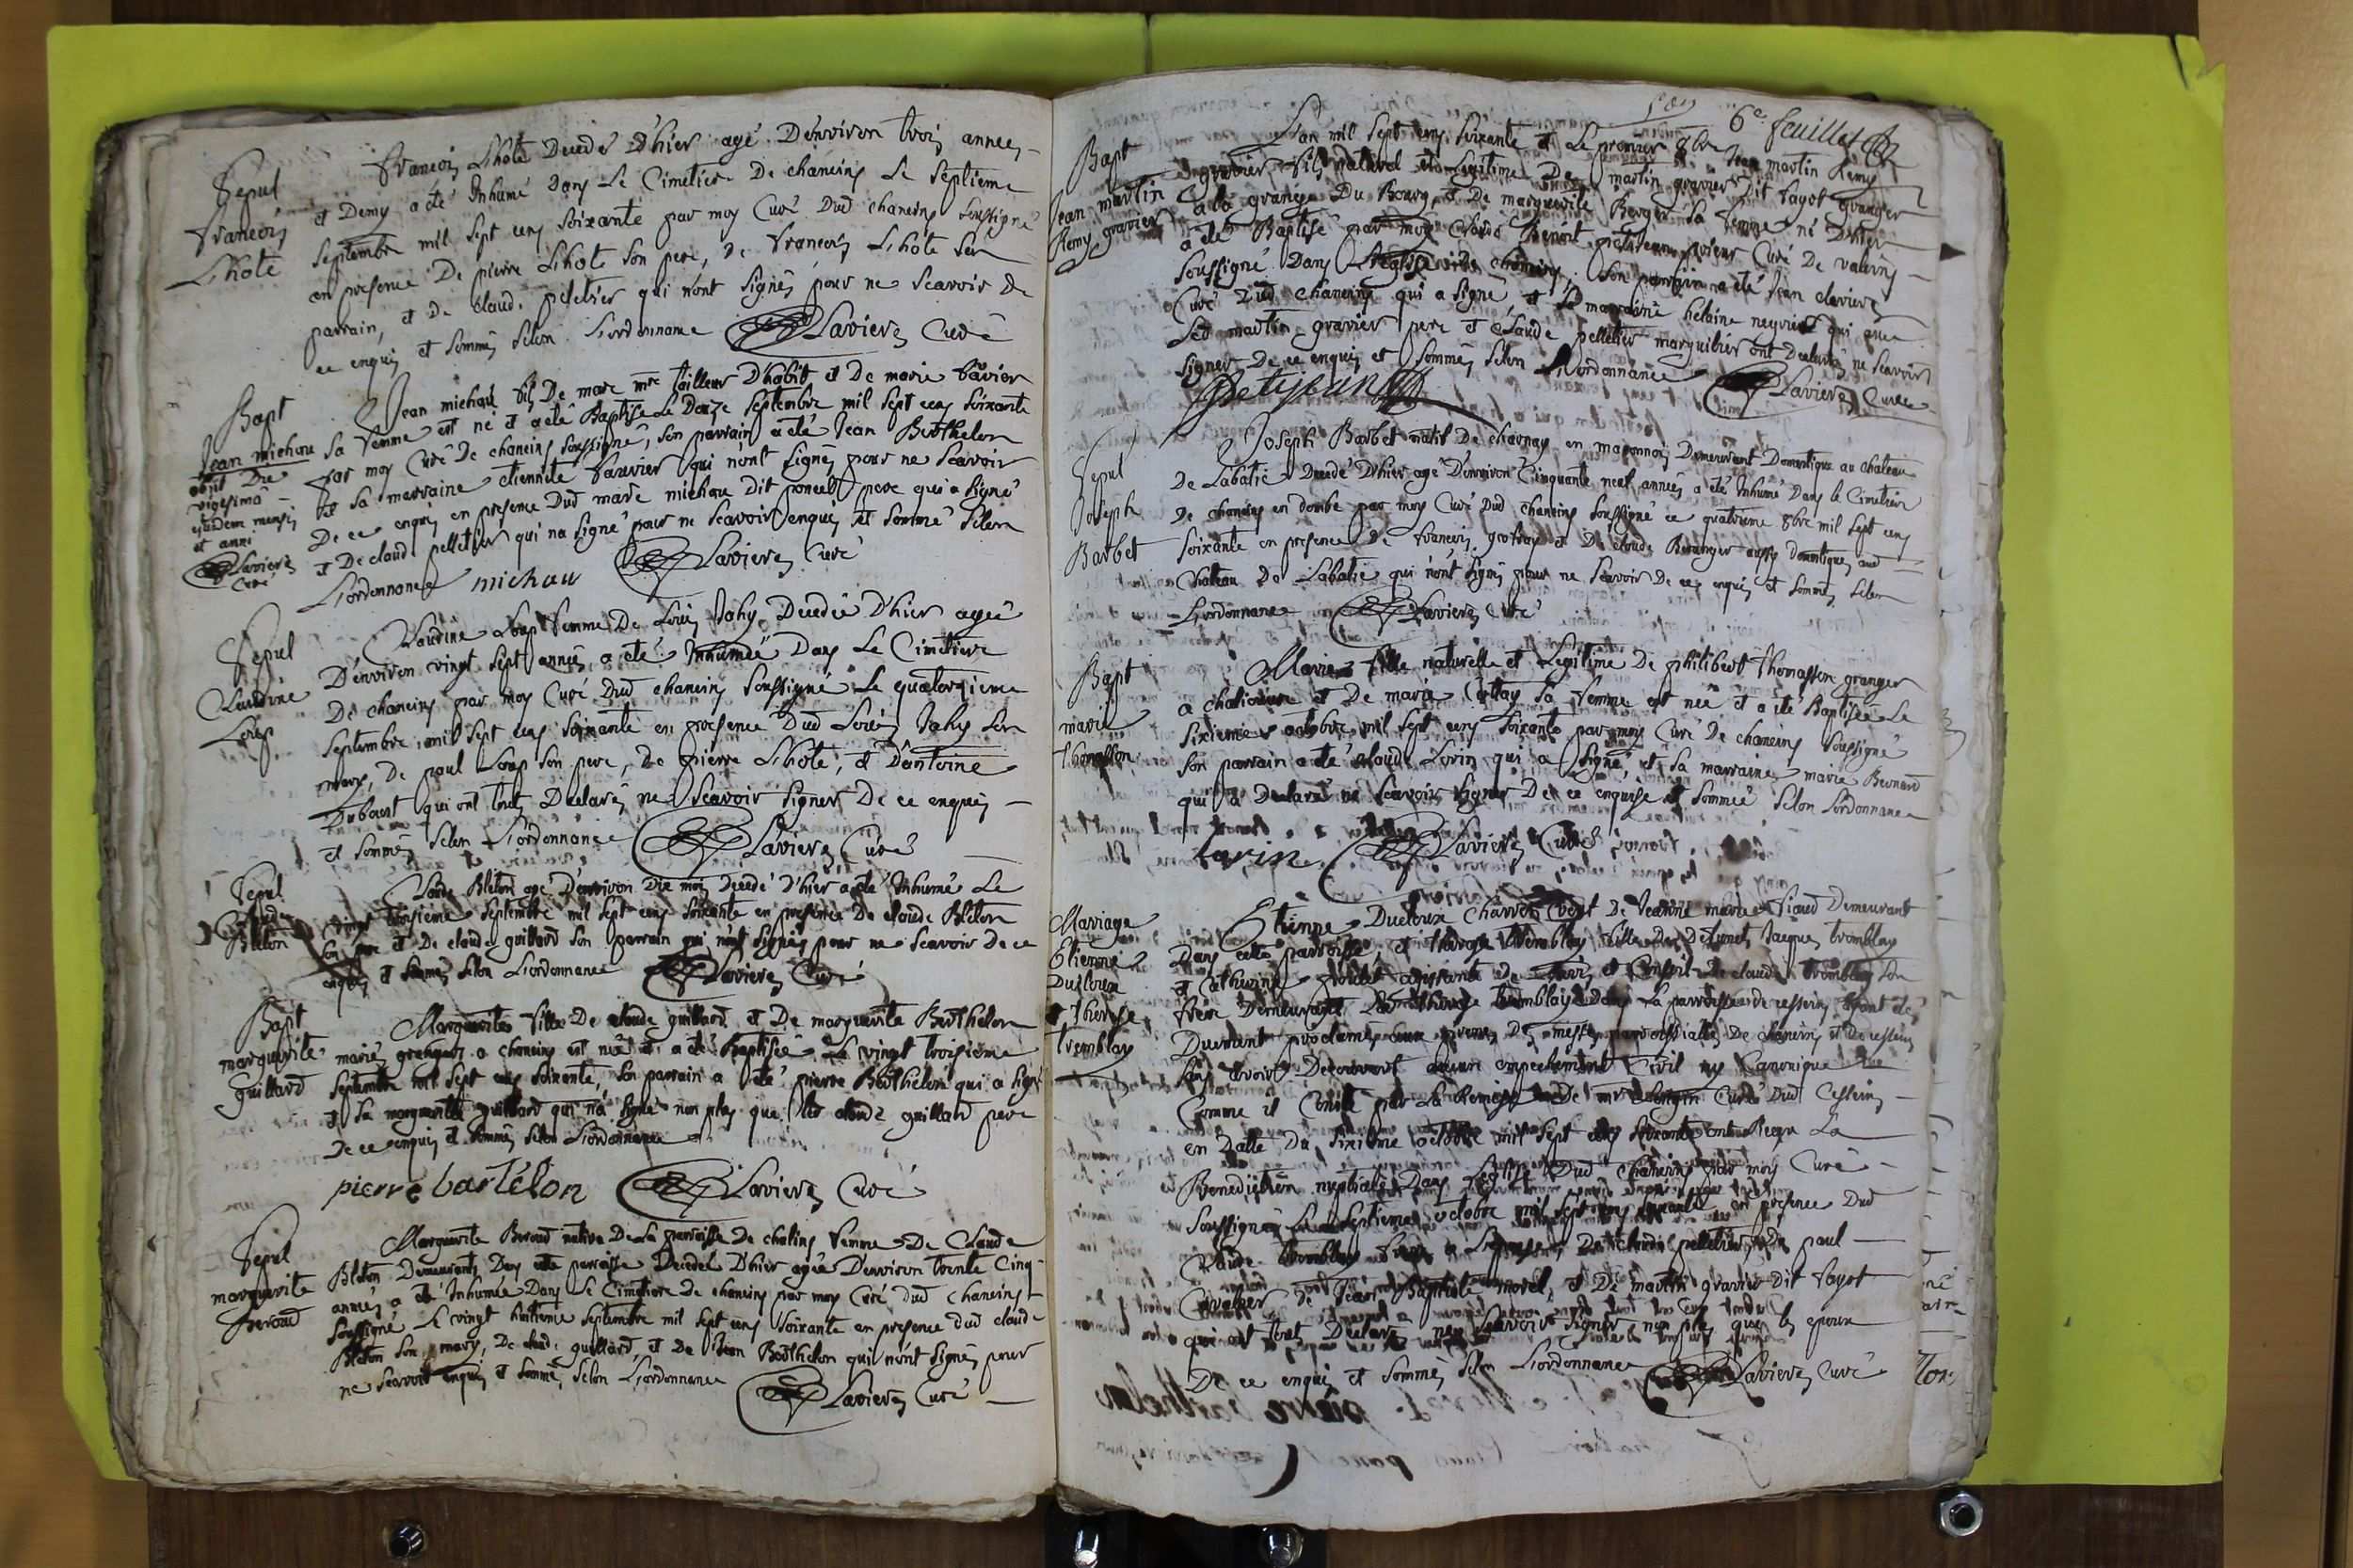 Sepul
francois
Lhote
francois Lhote Decedé D'hier agé D'environ trois annees
et Demy a eté Inhumé Dans Le Cimetiere De chaneins Le Septieme
Septembre mil sept cens Soixante par moy Curé Dud chaneins Soussigné
en presence De pierre Lhote Son pere, de francois Lhote Son
parrain, et De Claude pelletier qui n'ont Signés pour ne Scavoir de
ce enquis et Sommés Selon Lordonnance Lavieres Curé
Bapt
Jean michau
obiit Die
vigesima
ejusdem mensis
et anni
Lavieres
Curé
Jean michau fils De marc mre Tailleur D'habit et De marie
Sa femme est né et a eté Baptisé Le Douze Septembre mil Sept cens Soixante
par moy Curé De chaneins Soussigné, Son parrain a eté Jean Berthelon
et Sa marraine etiennete qui n'ont Signés pour ne Scavoir
De ce enquis en presence Dud marc michau Dit poncet pere qui a Signé
et De claude pelletier qui na Signé pour ne Scavoir enquis et Sommé Selon
Lordonnance michau Lavieres Curé
Sepul
Claudine
Loup
Claudine Loup femme De Louis Jahy Decedée D'hier agée
D'environ vingt Sept années, a eté Inhumée Dans Le Cimetiere
De chaneins par moy Curé Dud chaneins Soussigné Le quatorzieme
Septembre mil Sept cens Soixante en presence Dud Louis Jahy Son
mary, De paul Loup Son pere, De pierre Lhote, et D'antoine
Dubost qui ont touts Declarés ne Scavoir Signer De ce enquis
et Sommés Selon Lordonnance Lavieres Curé
Sepul
Claude
Bleton
Claude Bleton agé D'environ Dix mois Decedé D'hier a eté Inhumé Le
vingt troisieme Septembre mil Sept cens Soixante en presence De claude Bleton
Son pere et De claude guillard Son parrain qui n'ont Signés pour ne Scavoir de ce
enquis et Sommés Selon Lordonnance Lavieres Curé
Bapt
marguerite
guillard
Marguerite fille De claude guillard et De marguerite Berthelon
mariés grangers a chaneins est née et a eté Baptisée Le vingt troisieme
Septembre mil Sept cens Soixante, Son parrain a eté pierre Berthelon qui a Signé
et Sa marguerite guillard qui na Signé non plus que led claude guillard pere
De ce enquis et Sommés Selon Lordonnance
pierre bartélon Lavieres Curé
Sepul
marguerite
Beroud
Marguerite Beroud native De La parroisse De chaleins femme De Claude
Bleton Demeurants Dans cette parroisse Decedée D'hier agée D'environ trente Cinq
années a eté Inhumée Dans Le Cimetiere De chaneins par moy Curé Dud chaneins
Soussigné Le vingt huitieme Septembre mil Sept cens Soixante en presence dud claude
Bleton Son mary, De claude guillard, et De Jean Berthelon qui n'ont Signés pour
ne Scavoir enquis et Sommés Selon Lordonnance
Lavieres Curé
6e feuillet
Bapt
Jean martin
Remy gravier
L'an mil Sept cens Soixante et Le premier 8bre Jean martin Remy
gravier fils naturel et Legitime De martin gravier Dit fayot granger
a la grange Du Bourg et De marguerite Berger Sa femme né D'hier
a eté Baptisé par moy Claude Benoit petitjean prieur Curé De valeins
Soussigné Dans L'eglise De chaneins, Son parrain a eté Jean clavieres
Curé Dud chaneins qui a Signé et Sa marraine helaine neyrier qui avec
Led martin gravier pere et Claude pelletier marguilier ont Declarés ne Scavoir
Signer De ce enquis et Sommés Selon Lordonnance Lavieres Curé
Petitjean
Sepul
Joseph
Barbet
Joseph Barbet natif De charnay en maconnois Demeurant Domestique au chateau
De Labatie Decedé D'hier agé D'environ Cinquante neuf années a eté Inhumé Dans le Cimetiere
De chaneins en dombe par moy Curé Dud chaneins Soussigné ce quatrieme 8bre mil Sept cens
Soixante en presence De francois et De claude Beranger aussy Domestiques aud
Chateau De Labatie qui n'ont Signés pour ne Scavoir De ce enquis et Sommés Selon
Lordonnance Lavieres Curé
Bapt
marie
Thomasson
Marie fille naturelle et Legitime De philibert Thomasson granger
a et De marie Sa femme est née et a eté Baptisée Le
Sixieme octobre mil Sept cens Soixante par moy Curé De chaneins Soussigné
Son parrain a eté claude Lorin qui a Signé, et Sa marraine marie Bernard
qui a Declaré ne Scavoir Signer De ce enquise et Sommée Selon Lordonnance
Lorin Lavieres Curé
Mariage
Etienne
Ducloux
et Therese
Tremblay
Etienne Ducloux Charron veuf De Jeanne marie Demeurant
Dans cette parroisse, et therese tremblay fille De Defunct Jacques tremblay
et Catherine assistante De et Conseil De claude tremblay Son
frere Demeurante Lad therese tremblay Dans La parroisse de cesseins, ayant eté
Duement proclamés aux prones De messes parroissialles De chaneins et De cesseins
Sans avoir Decouvert aucun empechement Civil ny Canonique
Comme il Conste par La Remise De mr Curé Dud Cesseins
en Datte Du Sixieme octobre mil Sept cens Soixante ont Reçu La
Benediction nuptiale Dans L'eglise Dud chaneins par moy Curé
Soussigné Le Septieme octobre mil Sept cens Soixante en presence Dud
Claude tremblay frere De claude pelletier, De paul
de Jean Baptiste morel, et De martin gravier Dit fayot
qui ont touts Declarés ne Scavoir Signer non plus que les epoux
De ce enquis et Sommés Selon Lordonnance Lavieres Curé